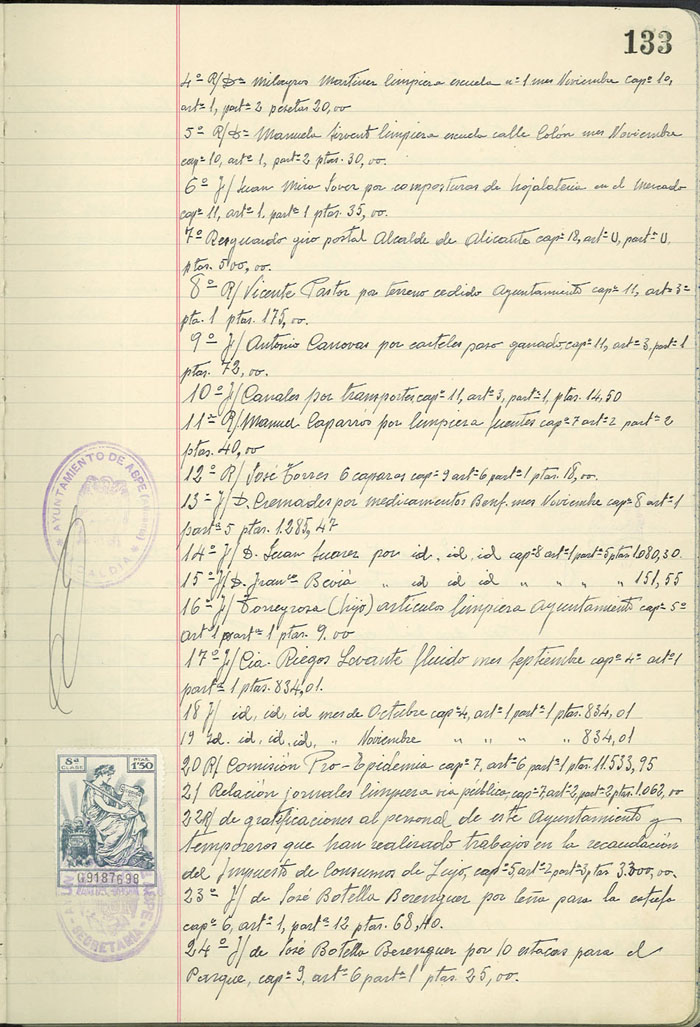 133
4º R/ Dª Milagros Martinez limpieza escuela nº 1 mes Noviembre capº 10,
artº 1, partª 2 pesetas 20,00
5º R/ Dª Manuela Sirvent limpieza escuela calle Colón mes Noviembre
capº 10, artº 1, partª 2 ptas. 30,00.
6º J/ Juan Mira Jover por composturas de hojalateria en el Mercado
capº 11, artº 1. partª 1 ptas. 35,00.
7º Resguardo giro postal Alcalde de Alicante capº 18, artº U, partª U,
ptas. 500,00.
8º R/ Vicente Pastor por terreno cedido Ayuntamiento capº 11, artº 3º
pta. 1 ptas. 175,00.
9º J/ Antonio Canovas por carteles paso ganado, capº 11, artº 3, partª 1
ptas. 72,00.
10º J/ Canales por transportes capº 11, artº 3, partª 1, ptas. 14,50
11º R/ Manuel Caparrós por limpieza fuentes capº 7 artº 2 partª 2
ptas. 40,00
12º R/ José Torres 6 caparas capº 9 artº 6 partª 1 ptas. 18,00.
13º J/ D. Cremades por medicamentos Benf. mes Noviembre capº 8 artº 1
partª 5 ptas. 1.285,47
14º J/ D. Juan Suarez por id, id, id capº 8 artº 1 partª 5 ptas 1.080,30
15º J/ D. Francº Beviá " id id id " " " " 151,55
16º J/ Torregrosa (hijo) artículos limpieza Ayuntamiento capº 5º
artº 1 partª 1 ptas. 9.00
17º J/ Cia. Riegos Levante fluido mes Septiembre capº 4º artº 1
partª 1 ptas. 834,01.
18 J/ id, id, id mes de Octubre capº 4, artº 1 partª 1 ptas. 834,01
19 Id. id, id, id, " Noviembre " " " " 834,01
20 R/ Comisión Pro-Epidemia capº 7, artº 6 partª 1 ptas 11.533,95
21 Relación jornales limpieza via pública, capº 7, artº 2, partª 2, ptas 1.062,00
22 R/ de gratificaciones al personal de este Ayuntamiento y
temporeros que han realizado trabajos en la recaudación
del Impuesto de Consumos de Lujo, capº 5, artº 2, partª 3, ptas 3.300,00.
23º J/ de José Botella Berenguer por leña para la estufa
capº 6, artº 1, partª 12 ptas. 68,40.
24º J/ de José Botella Berenguer por 10 estacas para el
Parque, capº 9, artº 6 partª 1 ptas. 25,00.
AYUNTAMIENTO DE ASPE
ALCALDIA
8ª CLASE
PTAS. 1'50
G9187698
ASPE
SECRETARIA